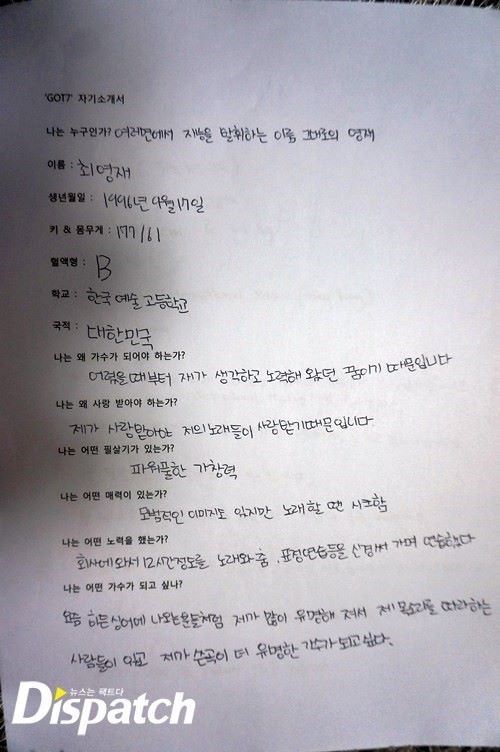 'GOT7' 자기소개서
나는 누구인가? 여러면에서 재능을 발휘하는 이름 그대로의 영재
이름 : 최영재
생년월일 : 1996년 9월 17일
키 & 몸무게 : 177/61
혈액형 : B
학교 : 한국 예술 고등학교
국적 : 대한민국
나는 왜 가수가 되어야 하는가?
어렸을때부터 제가 생각하고 노력해 왔던 꿈이기 때문입니다
나는 왜 사랑 받아야 하는가?
제가 사랑받아야 저의노래들이 사랑받기때문입니다
나는 어떤 필살기가 있는가?
파워풀한 가창력
나는 어떤 매력이 있는가?
모범적인 이미지도 있지만 노래할 땐 시크함
나는 어떤 노력을 했는가?
회사에와서 12시간정도를 노래와춤, 표정연습등을 신경써 가며 연습했다
나는 어떤 가수가 되고 싶나?
요즘 히든싱어에 나오는분들처럼 제가 많이 유명해 져서 제 목소리를 따라하는
사람들이 있고 제가 쓴곡이 더 유명한 가수가되고싶다.
뉴스는 팩트다
Dispatch